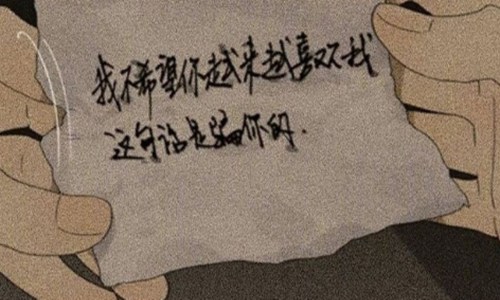 我不希望你越来越喜欢我
这句话是骗你的.